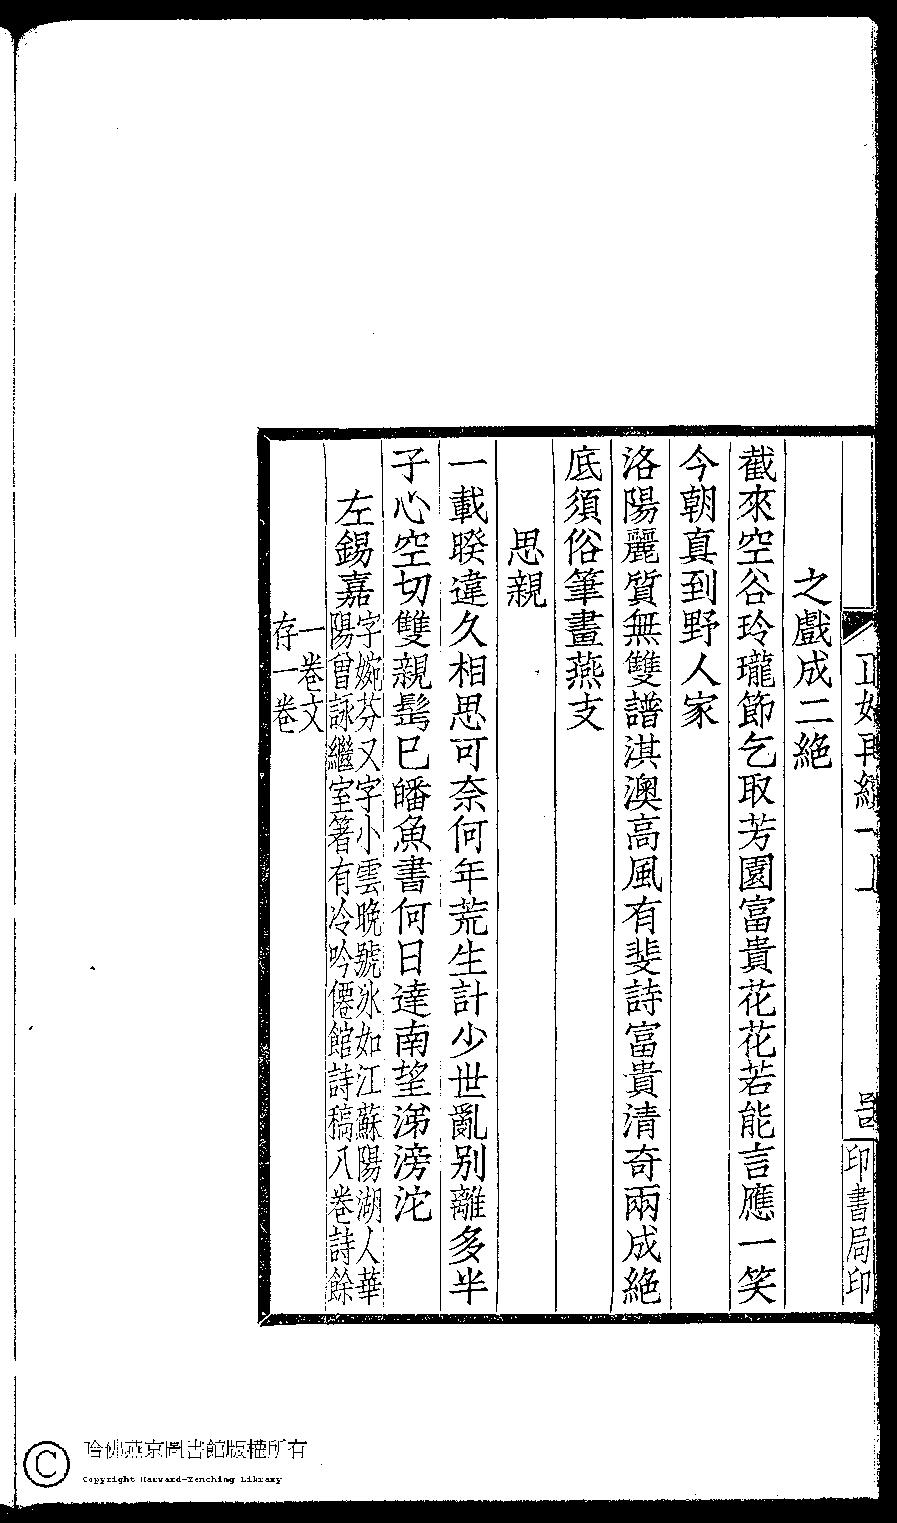 正始再續一上
印書局印
之戲成二絕
截來空谷玲瓏節乞取芳園富貴花花若能言應一笑
今朝真到野人家
洛陽麗質無雙譜淇澳高風有斐詩富貴清奇兩成絕
底須俗筆畫燕支
思親
一載暌違久相思可奈何年荒生計少世亂別離多半
子心空切雙親髩已皤魚書何日達南望涕滂沱
左錫嘉
字婉芬又字小雲晚號冰如江蘇陽湖人華
陽曾詠繼室箸有冷吟僊館詩稿八卷詩餘
一卷文
存一卷
哈佛燕京圖書館版權所有
Copyright Harvard-Yenching Library